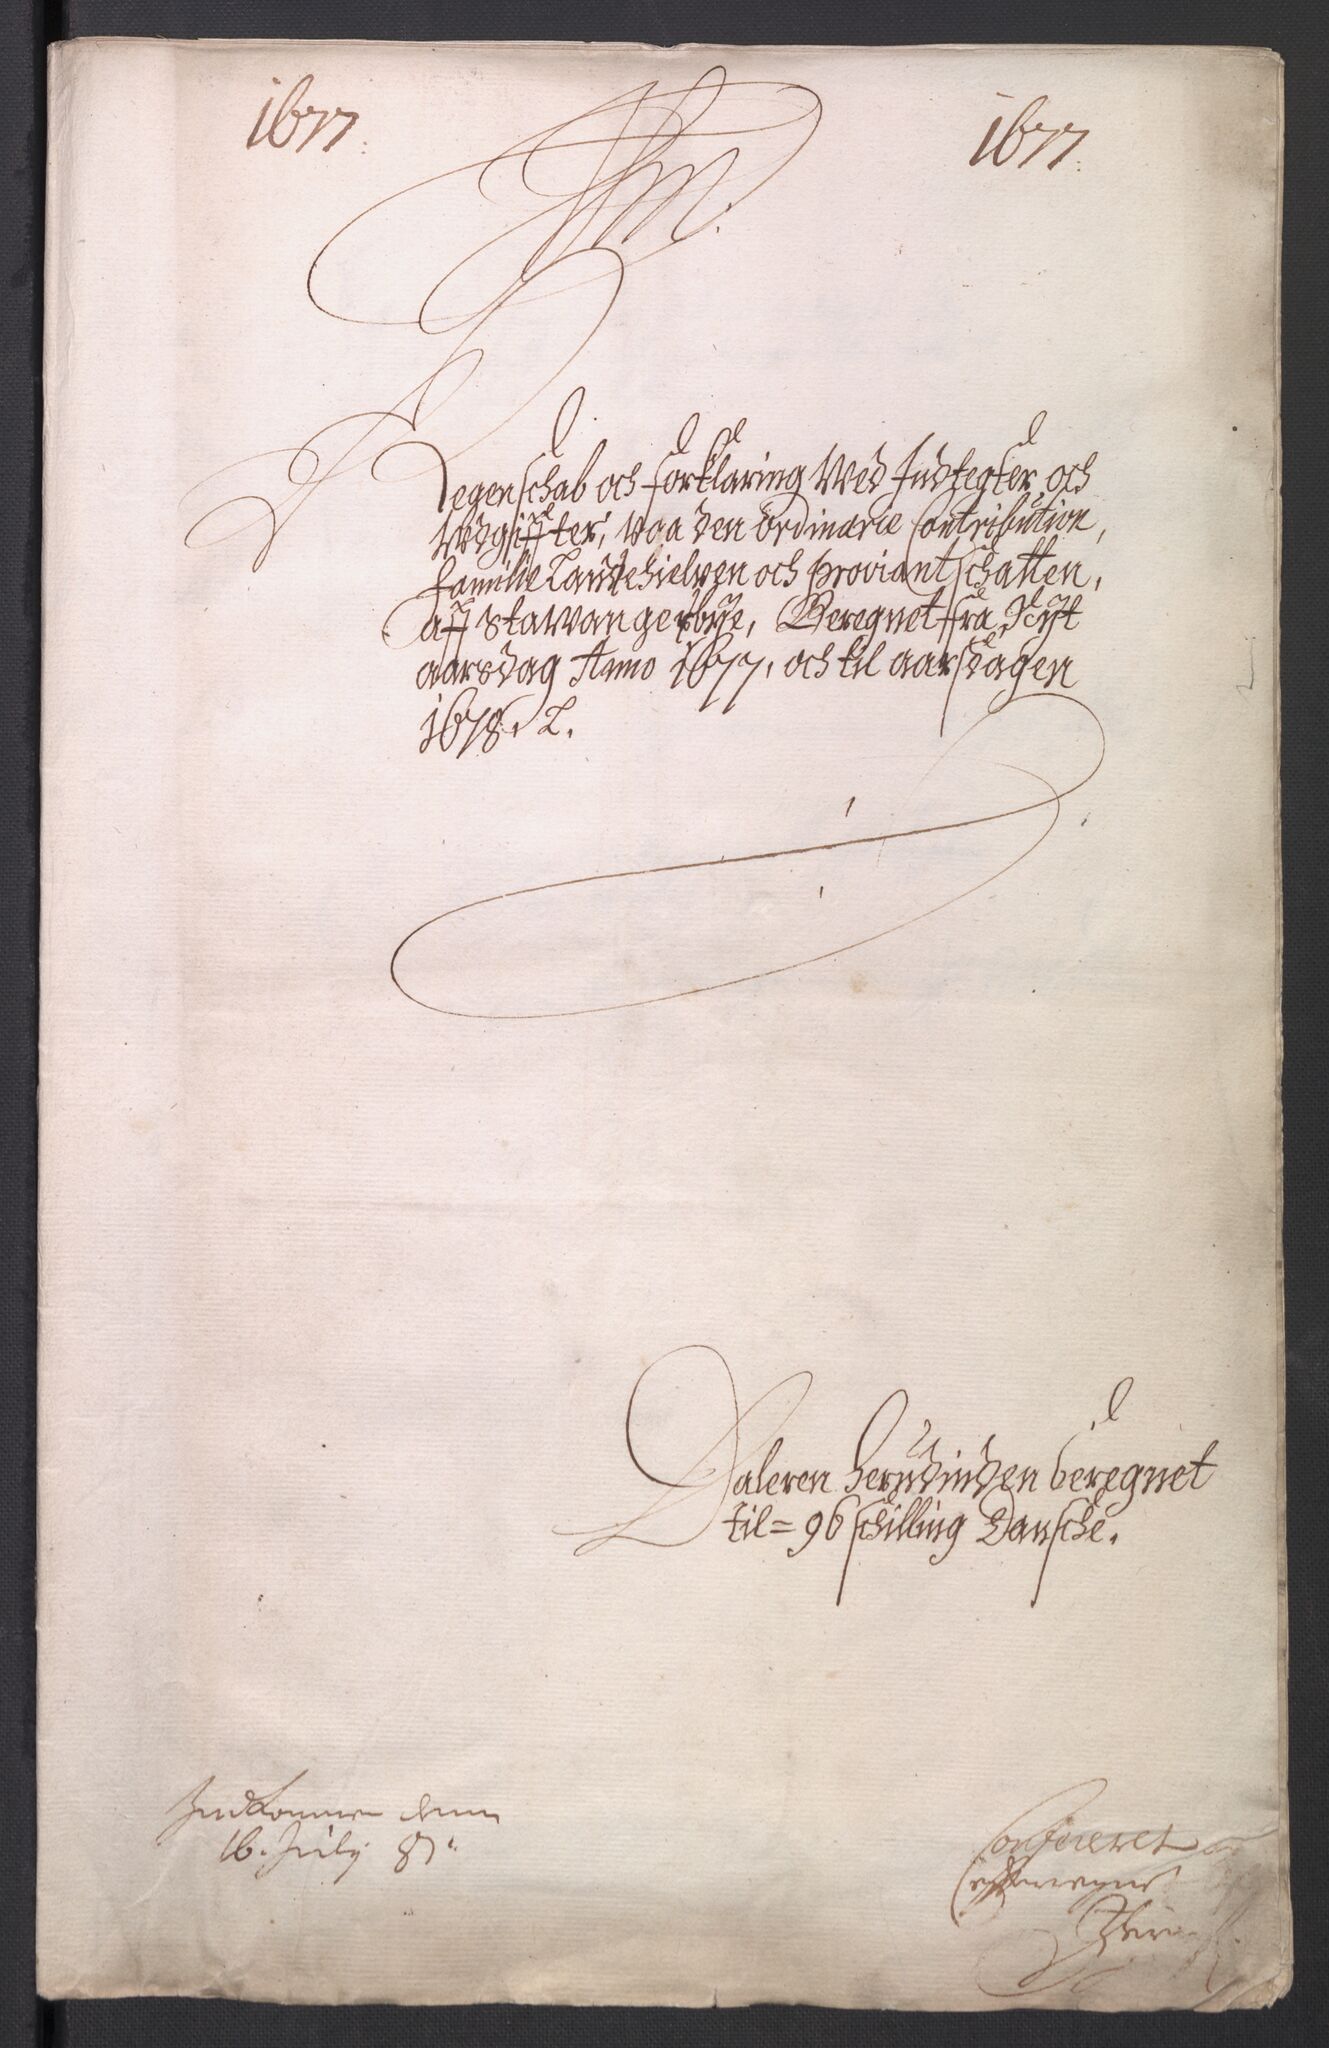 1677. 1677.
Regenschab och forklaring Ved Indtegter och
Vdgiffter, paa den ordinarie Contribution,
familie Laudehielpen och proviantschatten,
aff Stawangerbye, Beregnet fra Nyt
aarsdag Anno 1677. och til aarsdagen
1678. L.
Daleren herudinden beregnet
til = 96 schilling Dansche.
Indkommen denn
16. July 81.
Confereret